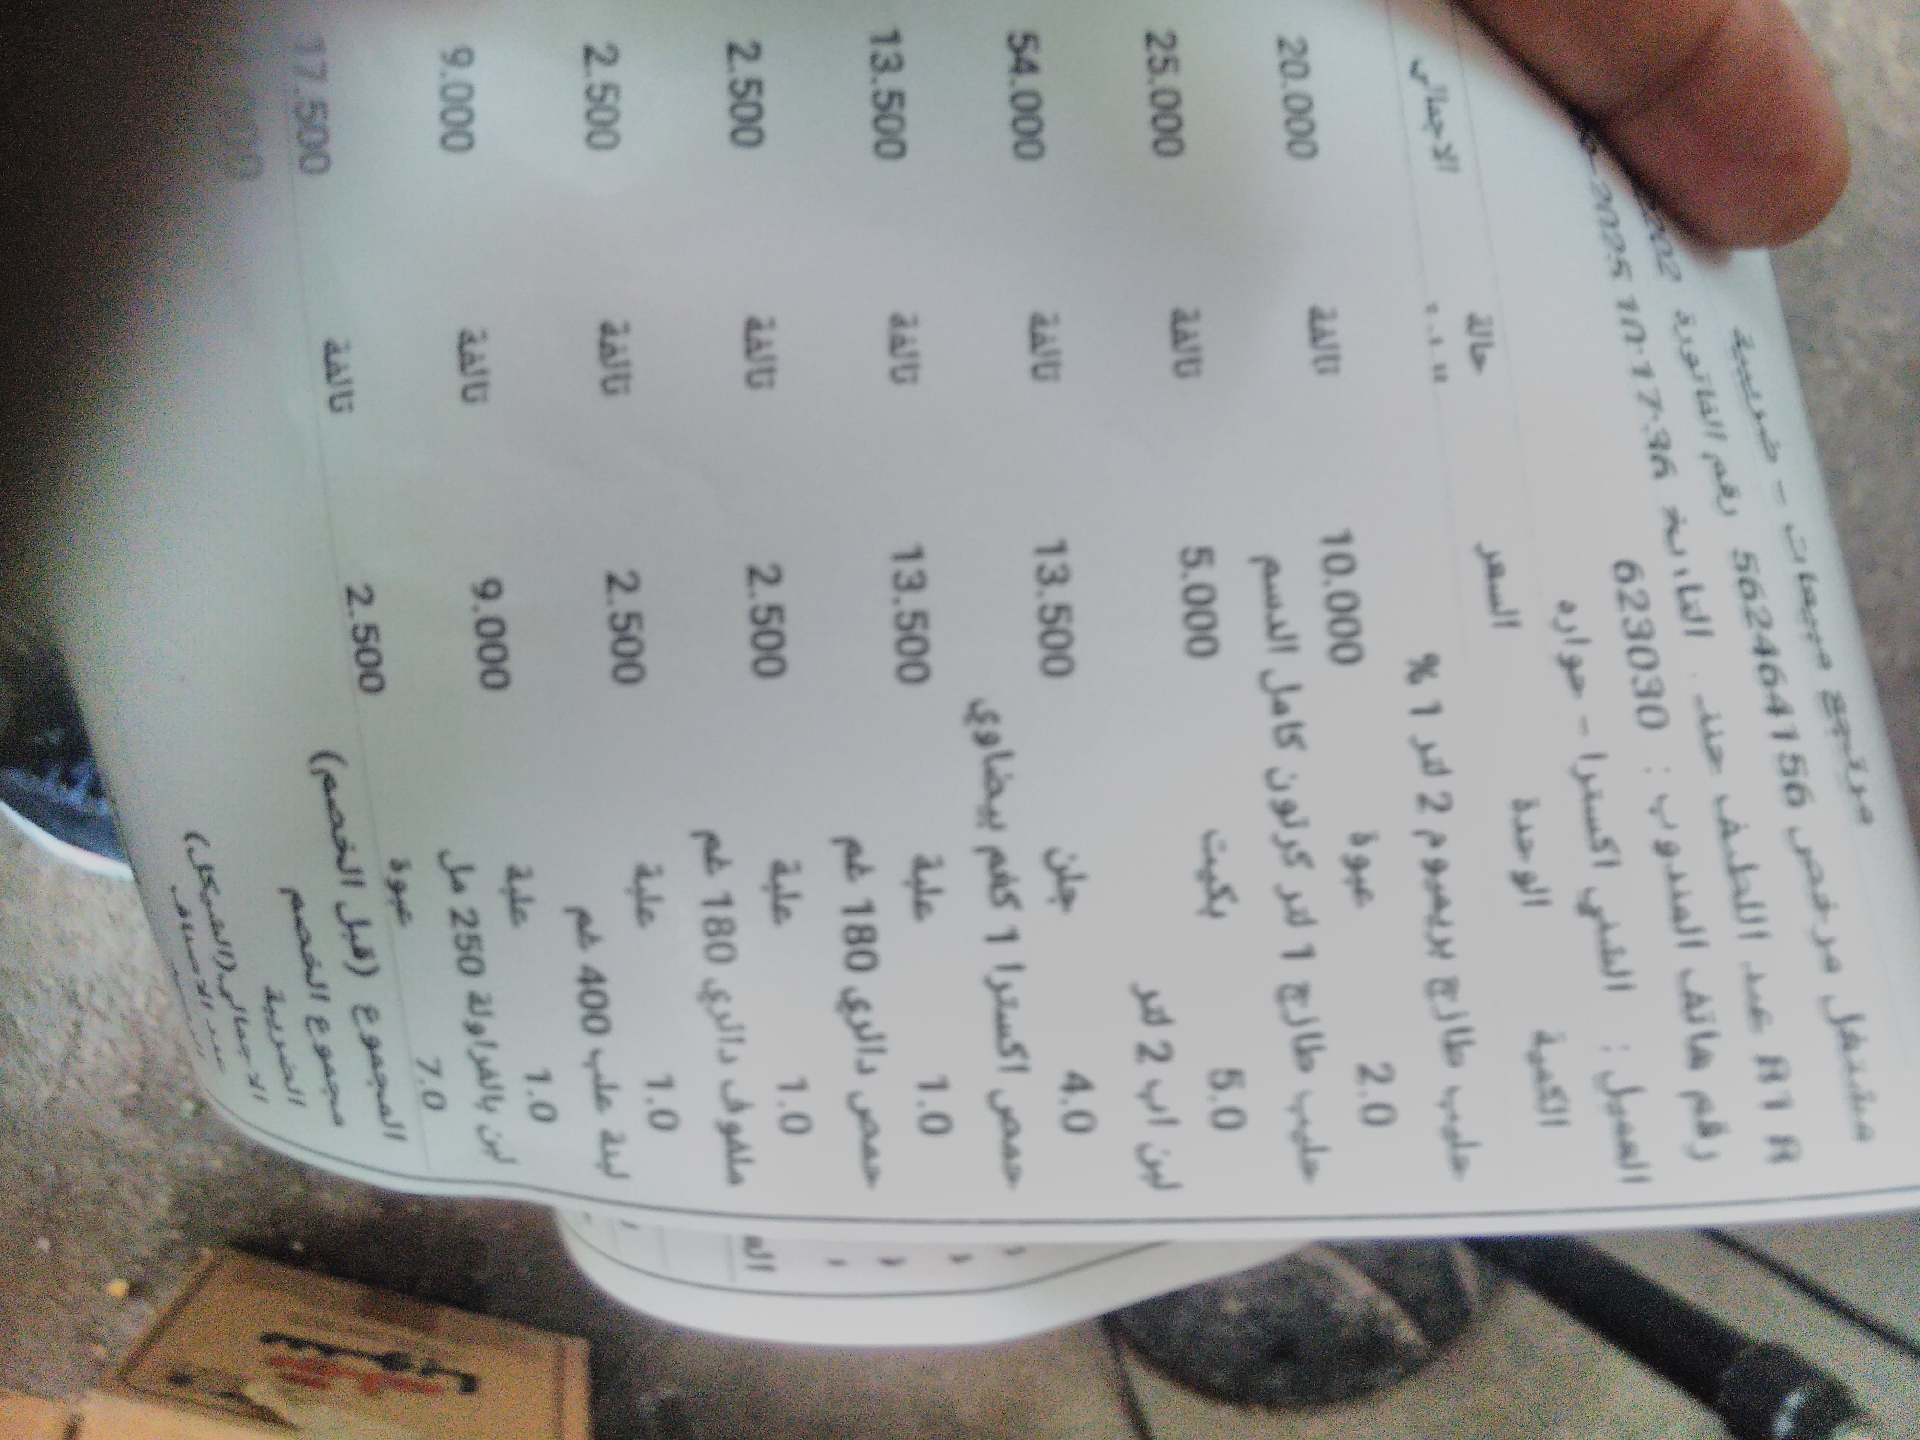 مرتجع مبيعات - ضريبية
مشتغل مرخص 562464156 رقم الفاتورة
عبد اللطيف
رقم هاتف المندوب : 623030
العميل : الشني اكسترا - حواره
الكمية الوحدة السعر حالة الاجمالي
حليب طازج بريميوم 2 لتر 1 %
2.0 عبوة 10.000 تالفة 20.000
حليب طازج 1 لتر كرتون كامل الدسم
5.0 بكيت 5.000 تالفة 25.000
لبن اب 2 لتر
4.0 جلن 13.500 تالفة 54.000
حمص اكسترا 1 كغم بيضاوي
1.0 علبة 13.500 تالفة 13.500
حمص دالري 180 غم
1.0 علبة 2.500 تالفة 2.500
ملفوف دالري 180 غم
1.0 علبة 2.500 تالفة 2.500
لبنة علب 400 غم
1.0 علبة 9.000 تالفة 9.000
لبن بالفراولة 250 مل
7.0 عبوة 2.500 تالفة 17.500
المجموع (قبل الخصم)
مجموع الخصم
الضريبة
الاجمالي(الشيكل)